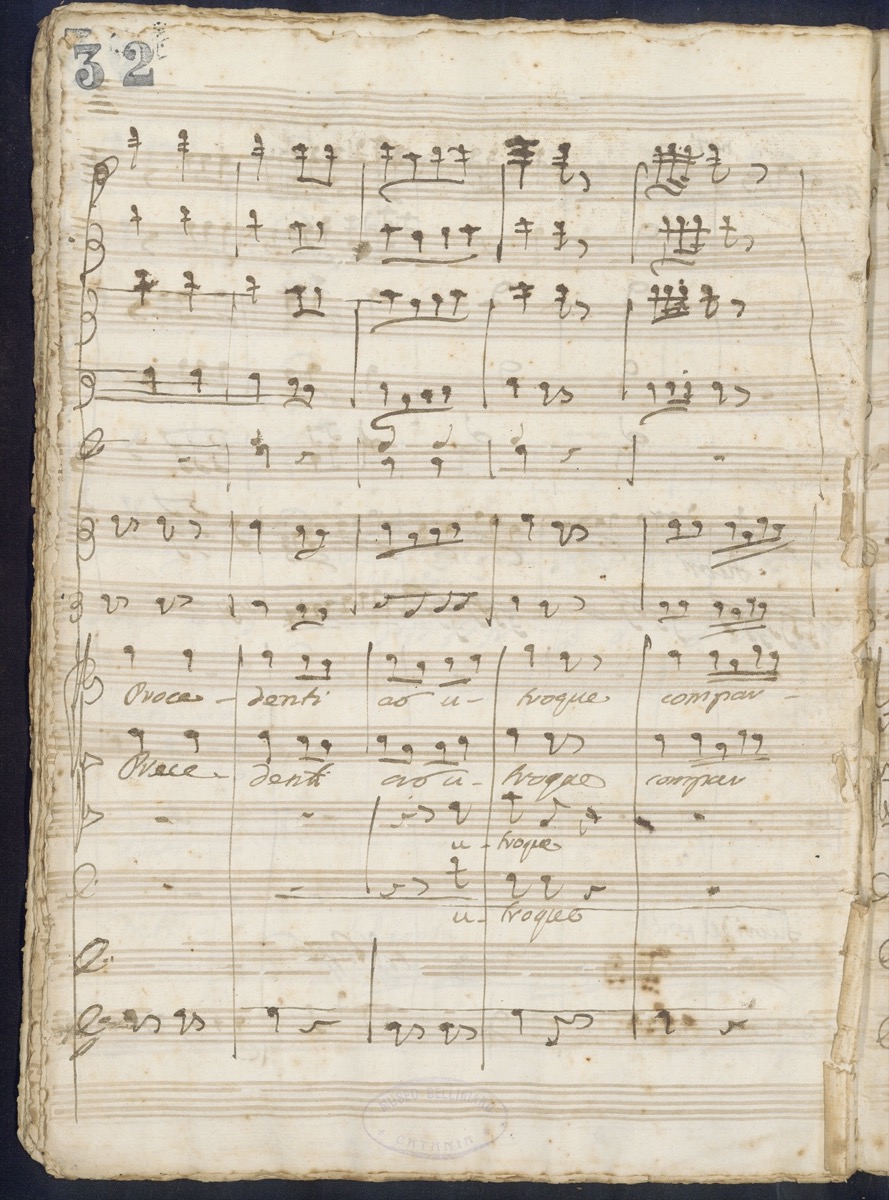 32
Proce - denti ab u - troque compar -
Proce - denti ab u - troque compar
u - troque
u - troque
MUSEO BELLINIANO
CATANIA